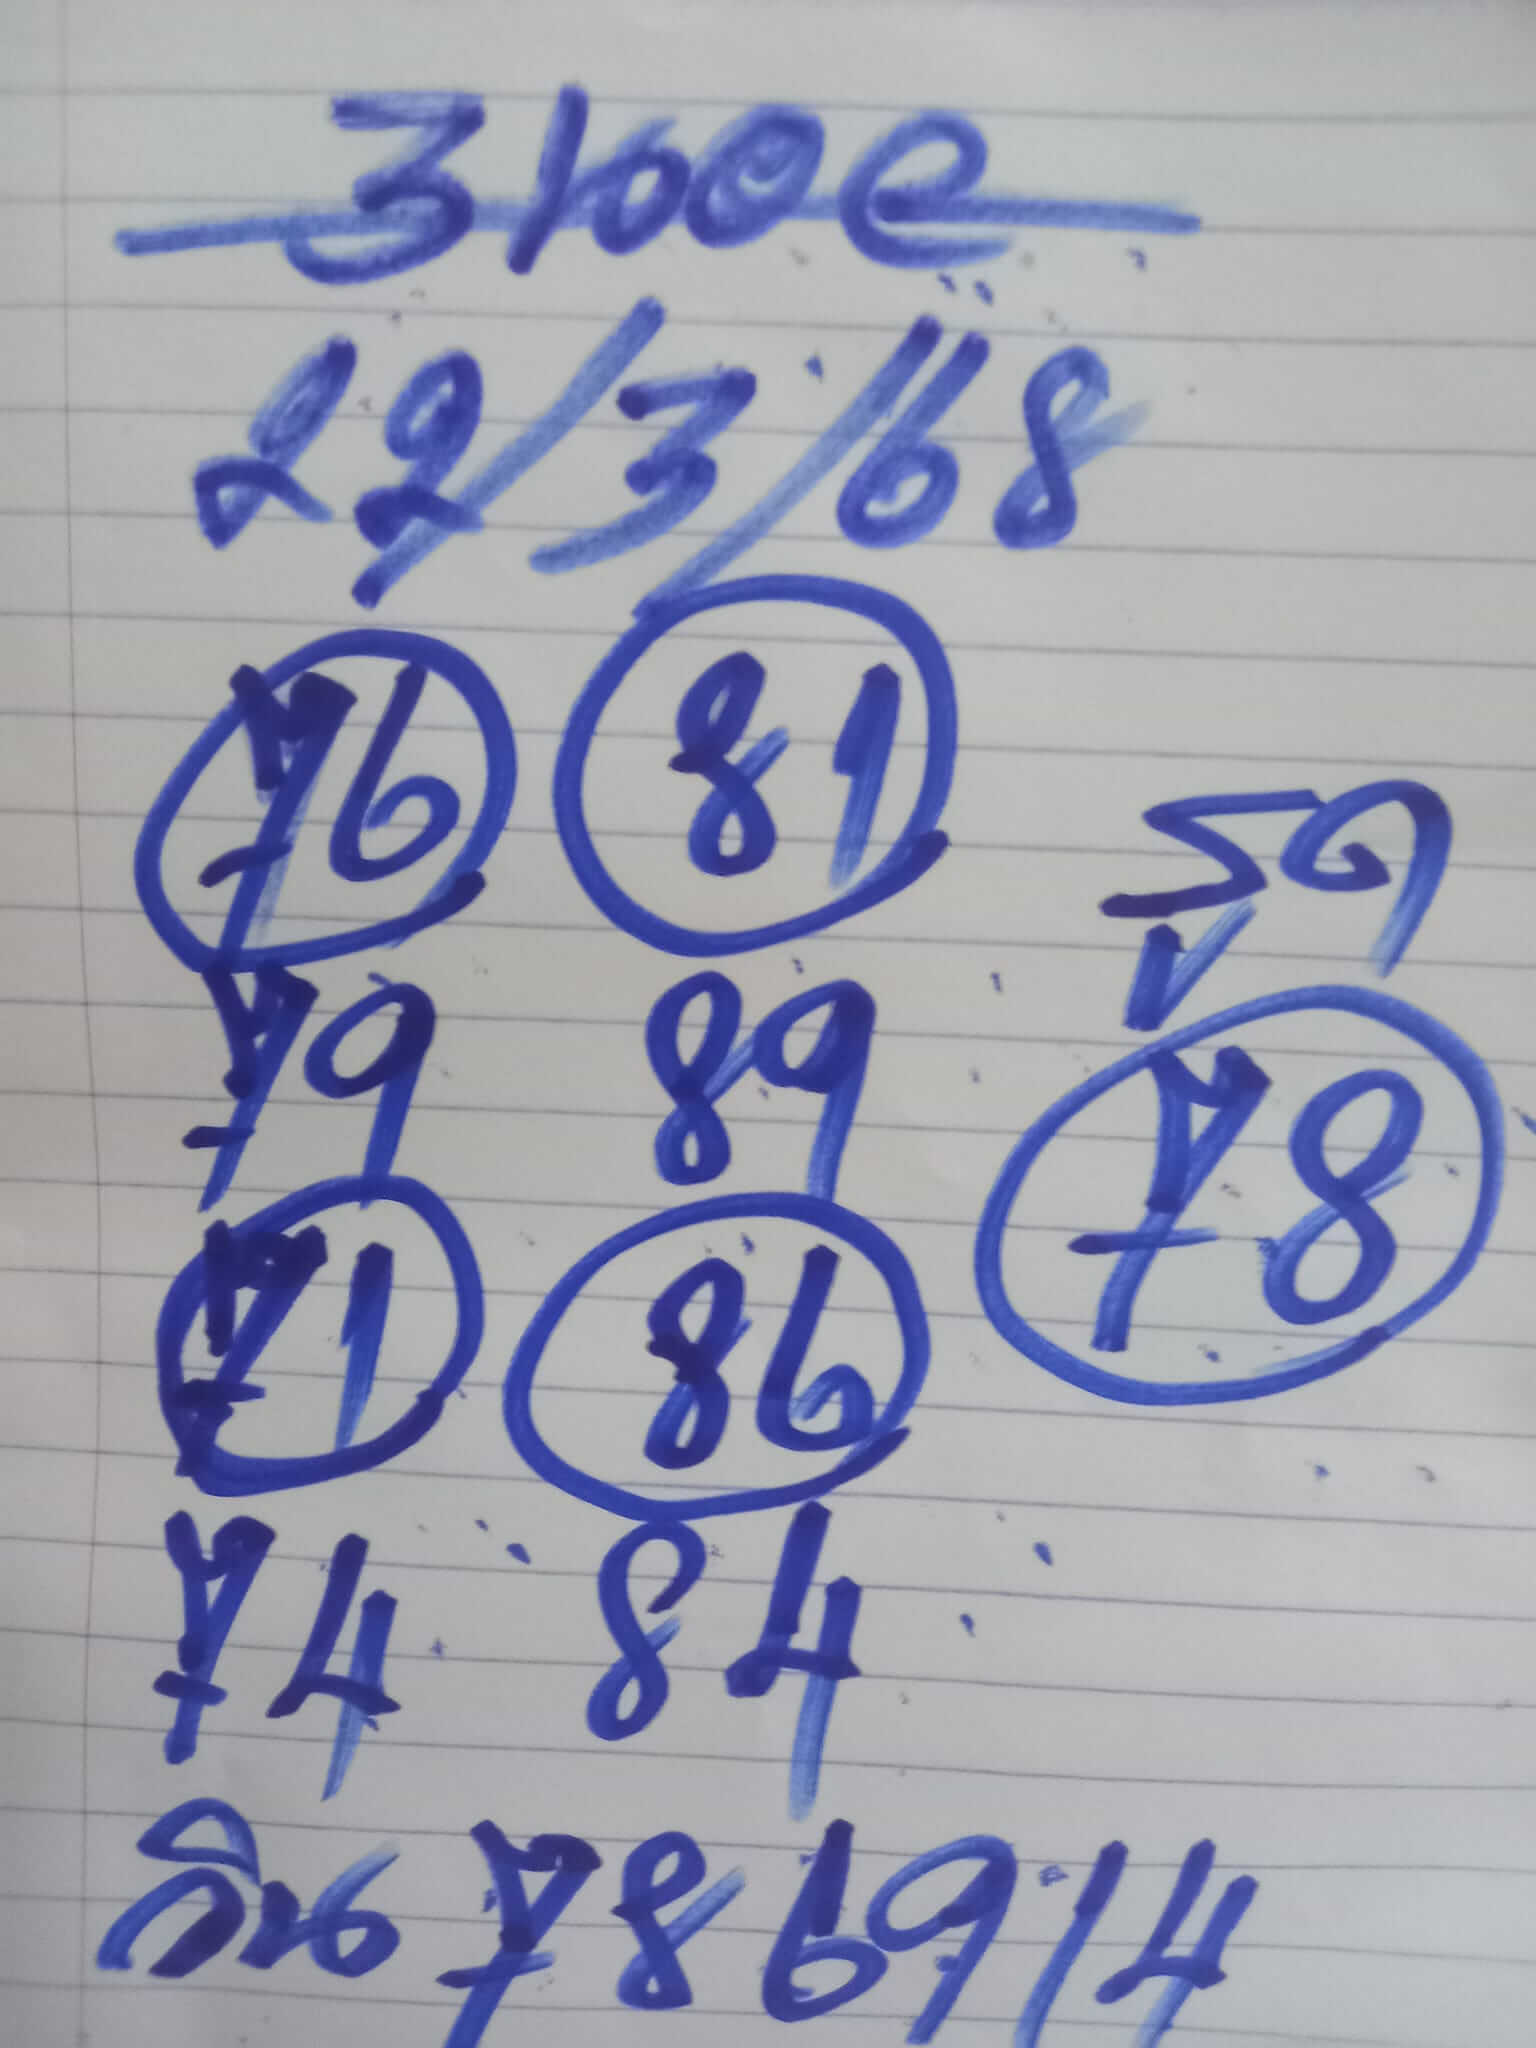 22/3/68
76 81
79 89
71 86
74 84
รูด
78
วิน 786914